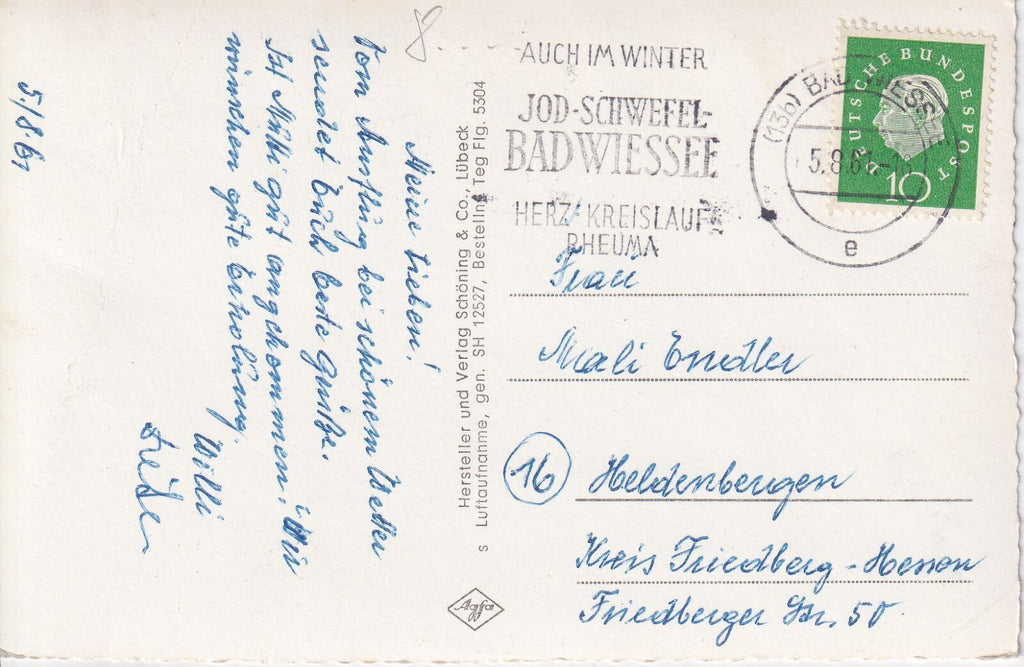 5./8.61
Meine Lieben!
Vom Ausflug bei schönem Wetter
sendet Euch beste Grüße.
Ist Malli gut angekommen? Wir
wünschen gute Erholung.
Willi
Hersteller und Verlag Schöning & Co., Lübeck
s Luftaufnahme, gen. SH 12527, Bestellnr. Teg Flg. 5304
Agfa
AUCH IM WINTER
JOD-SCHWEFEL-
BAD WIESSEE
HERZ-KREISLAUF
RHEUMA
(13b) BAD WIESSEE
5.8.61
e
DEUTSCHE BUNDESPOST
10
Frau
Mali Endler
16 Heldenbergen
Kreis Friedberg-Hessen
Friedberger Str. 50